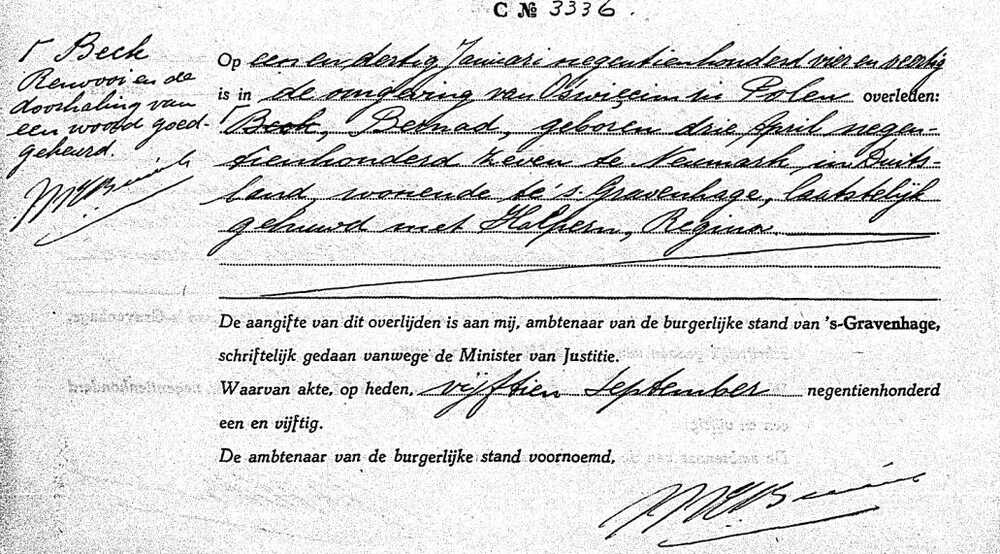 C № 3336.
Γ Beck
Renvooi en de
doorhaling van
een woord goed-
gekeurd.
Op een en dertig Januari negentienhonderd vier en veertig
is in de omgeving van Oswiecim in Polen overleden:
Γ Beck, Bernad, geboren drie April negen-
tienhonderd zeven te Neumark in Duits-
land, wonende te 's-Gravenhage, laatstelijk
gehuwd met Halpern, Regina
De aangifte van dit overlijden is aan mij, ambtenaar van de burgerlijke stand van 's-Gravenhage,
schriftelijk gedaan vanwege de Minister van Justitie.
Waarvan akte, op heden, vijftien September negentienhonderd
een en vijftig.
De ambtenaar van de burgerlijke stand voornoemd,